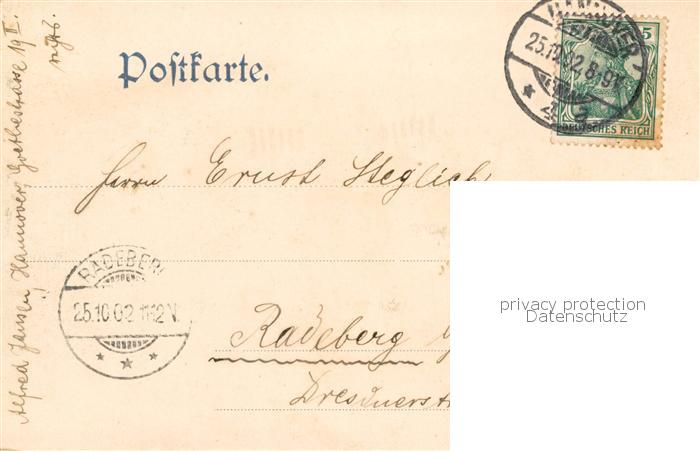 Postkarte.
HANNOVER
25.10.02.8-9V.
DEUTSCHES REICH
5
Herrn Ernst Steglich
RADEBER
25.10.02 11-12 V.
Radeberg
Dresdnerst
Alfred Jansen, Hannover, Goethestrasse 19 II.
privacy protection
Datenschutz